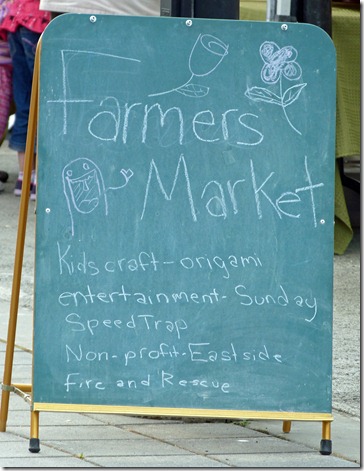 Farmers
Market
Kids craft - origami
entertainment - Sunday
Speed Trap
Non-profit - Eastside
Fire and Rescue